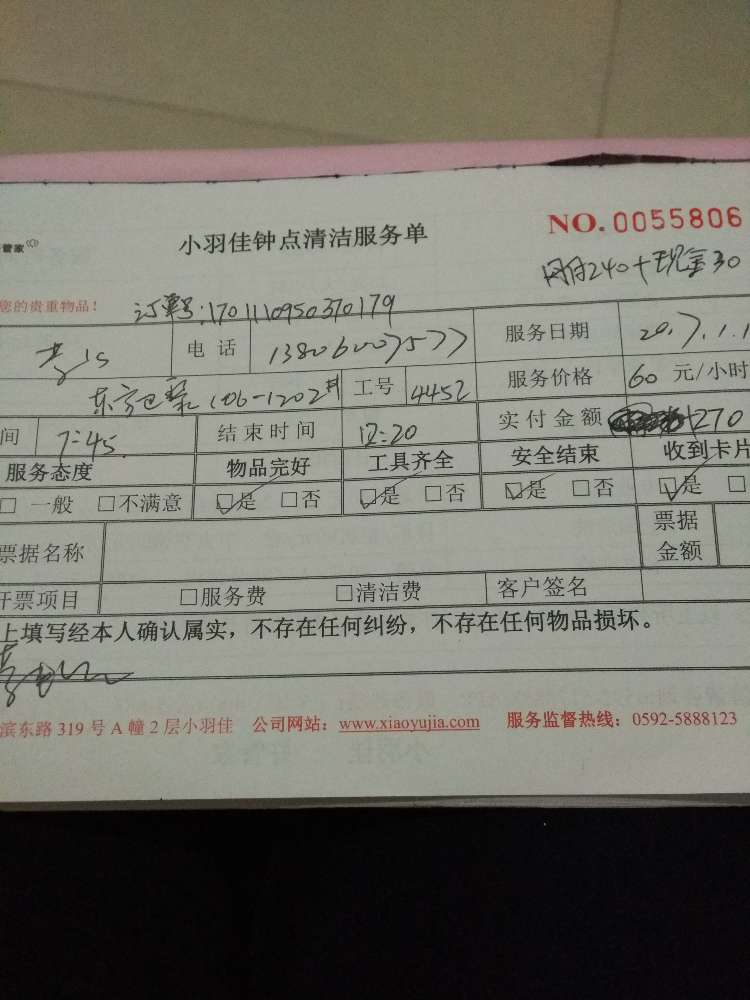 管家
小羽佳钟点清洁服务单
NO.0055806
网付240+现金30
您的贵重物品!
订单号:1701110950370179
电话
服务日期
工号 4452
服务价格 60 元/小时
间 7:45 结束时间 12:20
实付金额 270
服务态度 物品完好 工具齐全 安全结束 收到卡片
□ 一般 □不满意 □是 □否 □是 □否 □是 □否 □是 □
票据名称 票据金额
开票项目 □服务费 □清洁费 客户签名
上填写经本人确认属实,不存在任何纠纷,不存在任何物品损坏。
滨东路 319 号 A 幢 2 层小羽佳 公司网站:www.xiaoyujia.com 服务监督热线:0592-5888123